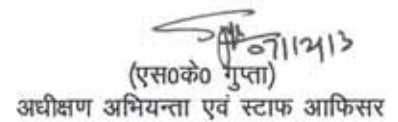 07/12/13
(एस0के0 गुप्ता)
अधीक्षण अभियन्ता एवं स्टाफ आफिसर